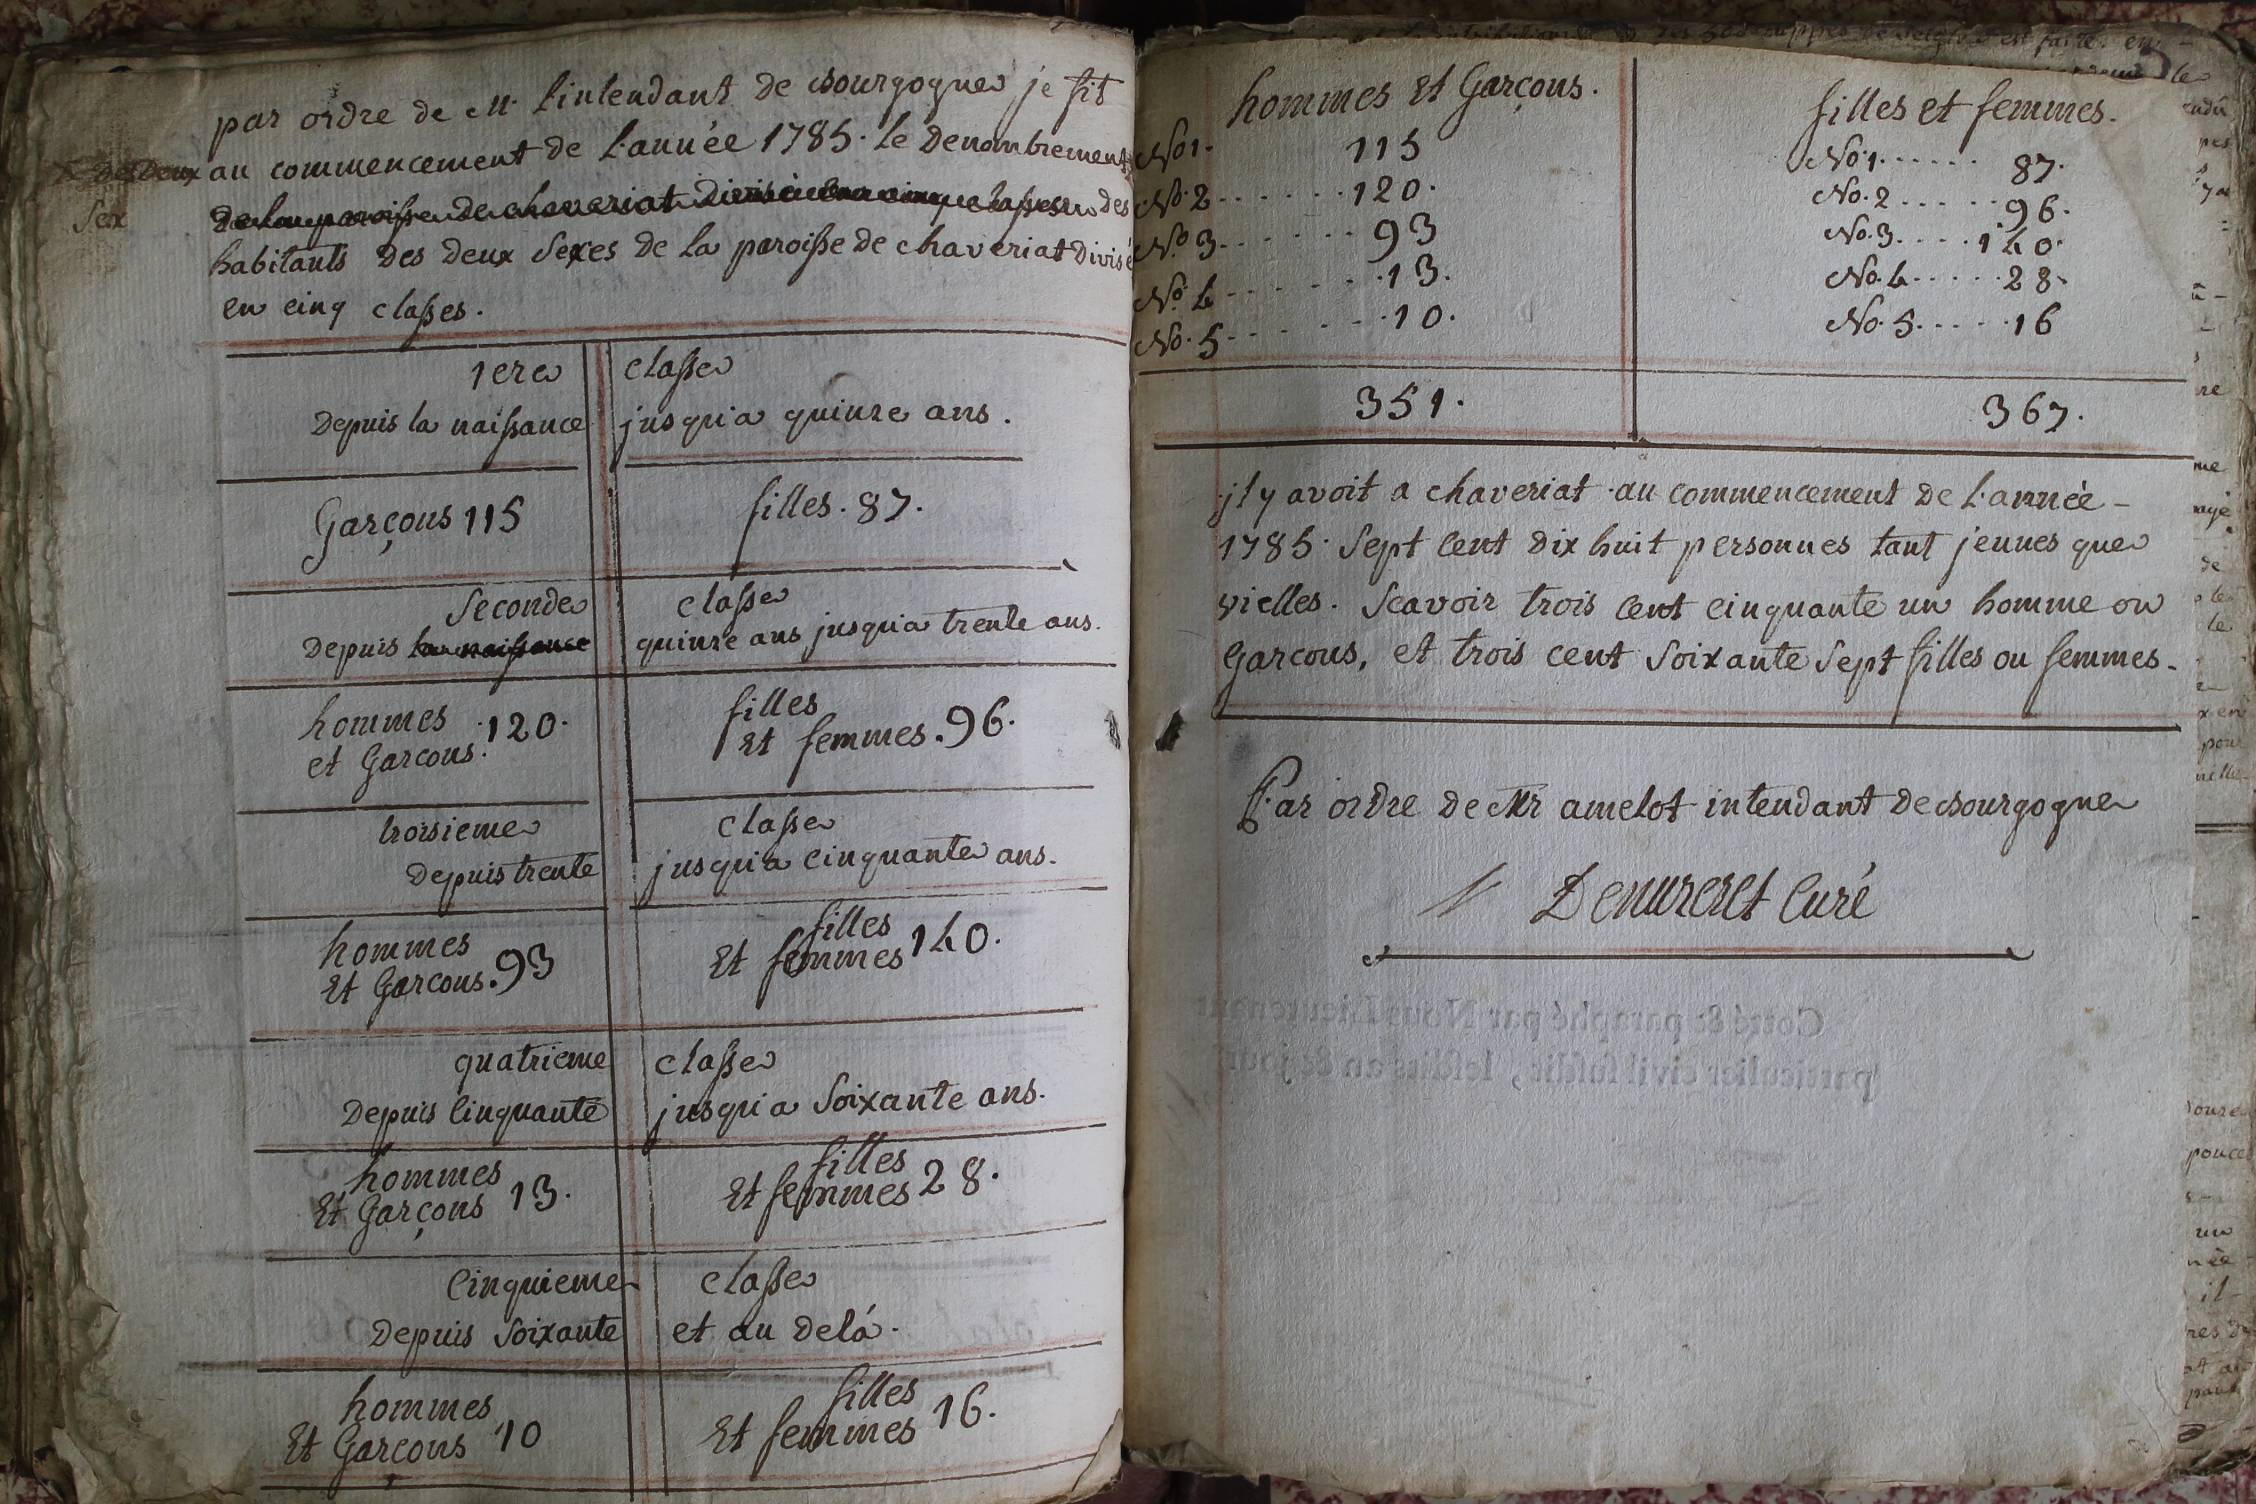 par ordre de M. L'intendant de Bourgogne je fit
des deux au commencement de L'année 1785. le Denombrement
sex de la paroisse de chaveriat divisé en cinq classes des
habitants des deux sexes de la paroisse de chaveriat divisé
en cinq classes.
1ere classe
Depuis la naissance jusqu'a quinze ans.
Garçons 115 filles. 87.
Seconde classe
Depuis la naissance quinze ans jusqu'a trente ans.
hommes et Garcons. 120. filles Et femmes. 96.
troisieme classe
Depuis trente jusqu'a cinquante ans.
hommes Et Garcons. 93 filles Et femmes 140.
quatrieme classe
Depuis Cinquante jusqu'a Soixante ans.
hommes Et Garçons 13. filles Et femmes 28.
Cinquieme classe
Depuis Soixante et au delá.
hommes Et Garcons 10 filles Et femmes 16.
hommes et Garçons. filles et femmes.
No 1. 115 No. 1...... 87.
No. 2....... 120. No. 2...... 96.
No. 3....... 93 No. 3..... 140.
No. 4....... 13. No. 4..... 28.
No. 5....... 10. No. 5..... 16
351. 367.
jl y avoit a chaveriat au commencement de L'année -
1785. Sept Cent Dix huit personnes tant jeunes que
vielles. Scavoir trois Cent cinquante un homme ou
Garcons, et trois cent Soixante Sept filles ou femmes.
Par ordre de Mr amelot intendant de Bourgogne
Curé
Cotté & paraphé par Nous Lieutenant
particulier civil susdit, lesdits an & jour